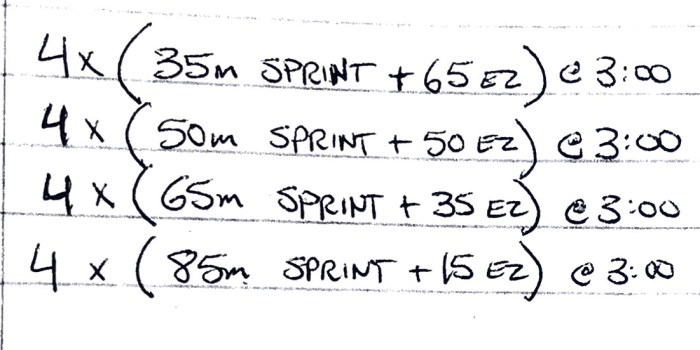 4 x (35m SPRINT + 65 EZ) @ 3:00
4 x (50m SPRINT + 50 EZ) @ 3:00
4 x (65m SPRINT + 35 EZ) @ 3:00
4 x (85m SPRINT + 15 EZ) @ 3:00